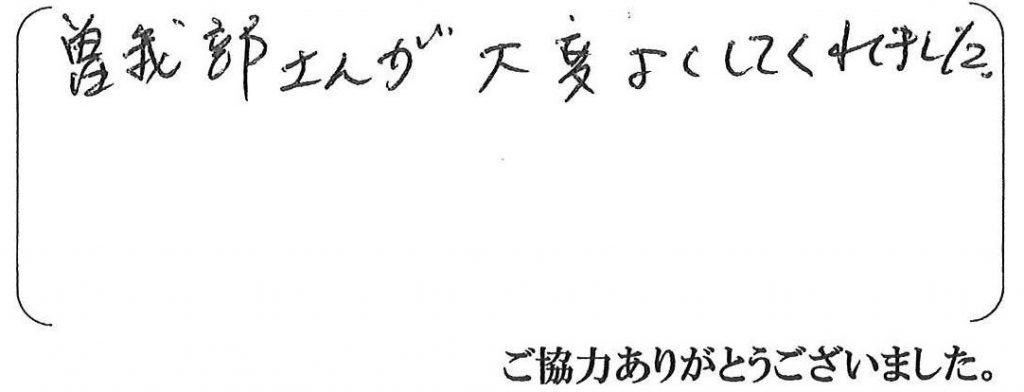 曽我部さんが大変よくしてくれてました。
ご協力ありがとうございました。